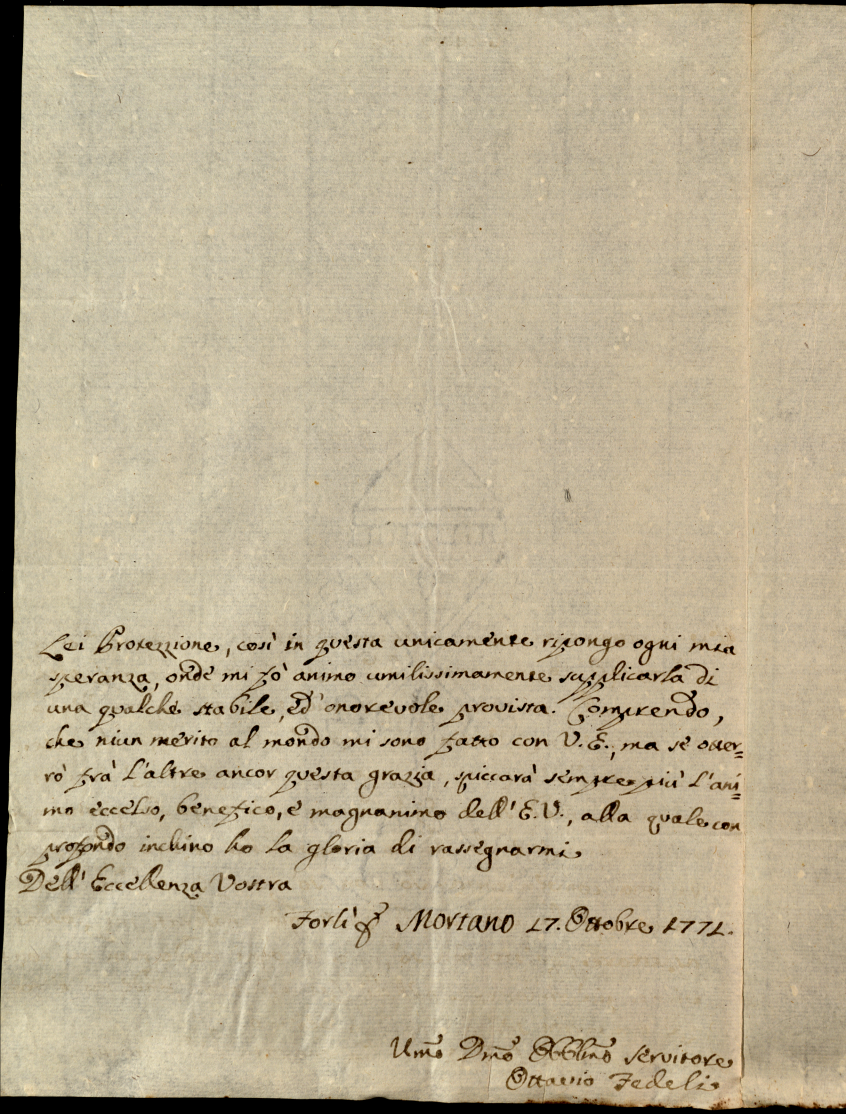 Lei Protezzione, così in questa unicamente ripongo ogni mia
speranza, onde mi fò animo umilissimamente supplicarla di
una qualche stabile, ed onorevole provista. Comprendo,
che niun merito al mondo mi sono fatto con V. E., ma se otter=
rò frà l'altre ancor questa grazia, spiccarà sempre più l'ani=
mo eccelso, benefico, e magnanimo dell'E. V., alla quale con
profondo inchino ho la gloria di rassegnarmi
Dell'Eccellenza Vostra
Forlì Mortano 17. Ottobre 1771.
Umo Dmo Obblmo servitore
Ottavio Fedeli